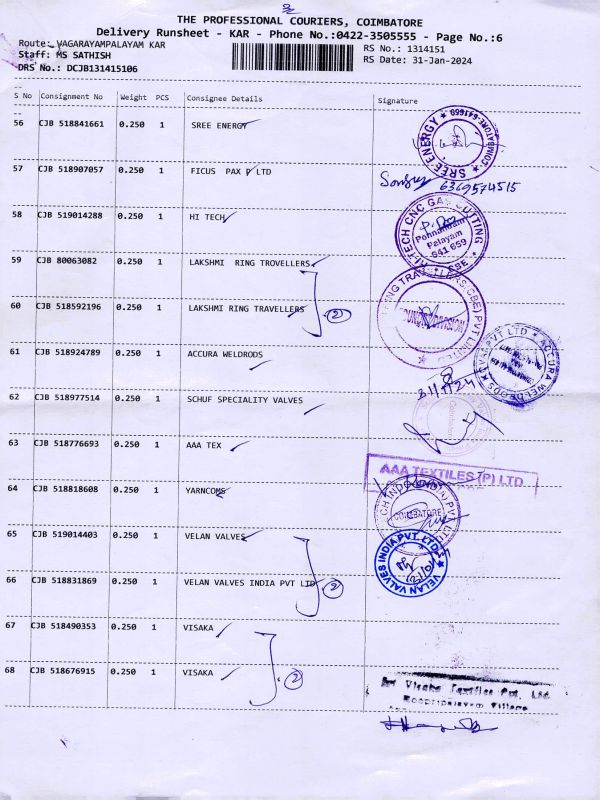 THE PROFESSIONAL COURIERS, COIMBATORE
Delivery Runsheet - KAR - Phone No.:0422-3505555 - Page No.:6
Route: VAGARAYAMPALAYAM KAR
RS No.: 1314151
Staff: MS SATHISH
RS Date: 31-Jan-2024
DRS No.: DCJB131415106
S No Consignment No Weight PCS Consignee Details Signature
56 CJB 518841661 0.250 1 SREE ENERGY
SREE ENERGY
57 CJB 518907057 0.250 1 FICUS PAX P LTD
6369574515
58 CJB 519014288 0.250 1 HI TECH
HI-TECH CNC GAS CUTTING
Palayam
641 659
59 CJB 80063082 0.250 1 LAKSHMI RING TROVELLERS
60 CJB 518592196 0.250 1 LAKSHMI RING TRAVELLERS
2
RING TRAVELLERS (CBE) PVT LIMITED
61 CJB 518924789 0.250 1 ACCURA WELDRODS
ACCURA WELDRODS KOVAI PVT LTD
62 CJB 518977514 0.250 1 SCHUF SPECIALITY VALVES
63 CJB 518776693 0.250 1 AAA TEX
AAA TEXTILES (P) LTD
64 CJB 518818608 0.250 1 YARNCOMS
COIMBATORE
65 CJB 519014403 0.250 1 VELAN VALVES
VELAN VALVES INDIA PVT. LTD.
66 CJB 518831869 0.250 1 VELAN VALVES INDIA PVT LTD
2
67 CJB 518490353 0.250 1 VISAKA
68 CJB 518676915 0.250 1 VISAKA
2
Sri Visaka Textiles Pvt. Ltd.